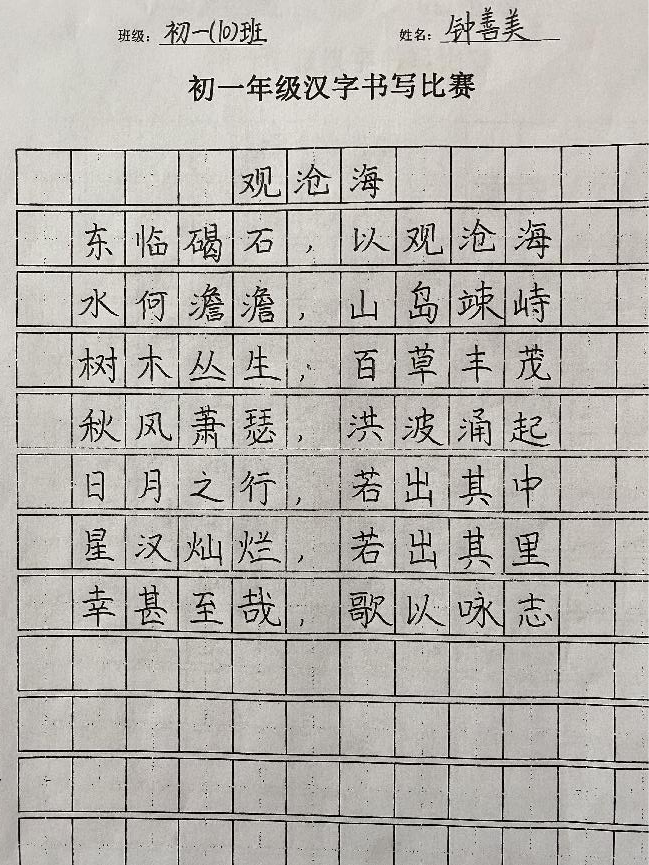 班级：初一(10)班 姓名：钟善美
初一年级汉字书写比赛
观沧海
东临碣石，以观沧海
水何澹澹，山岛竦峙
树木丛生，百草丰茂
秋风萧瑟，洪波涌起
日月之行，若出其中
星汉灿烂，若出其里
幸甚至哉，歌以咏志